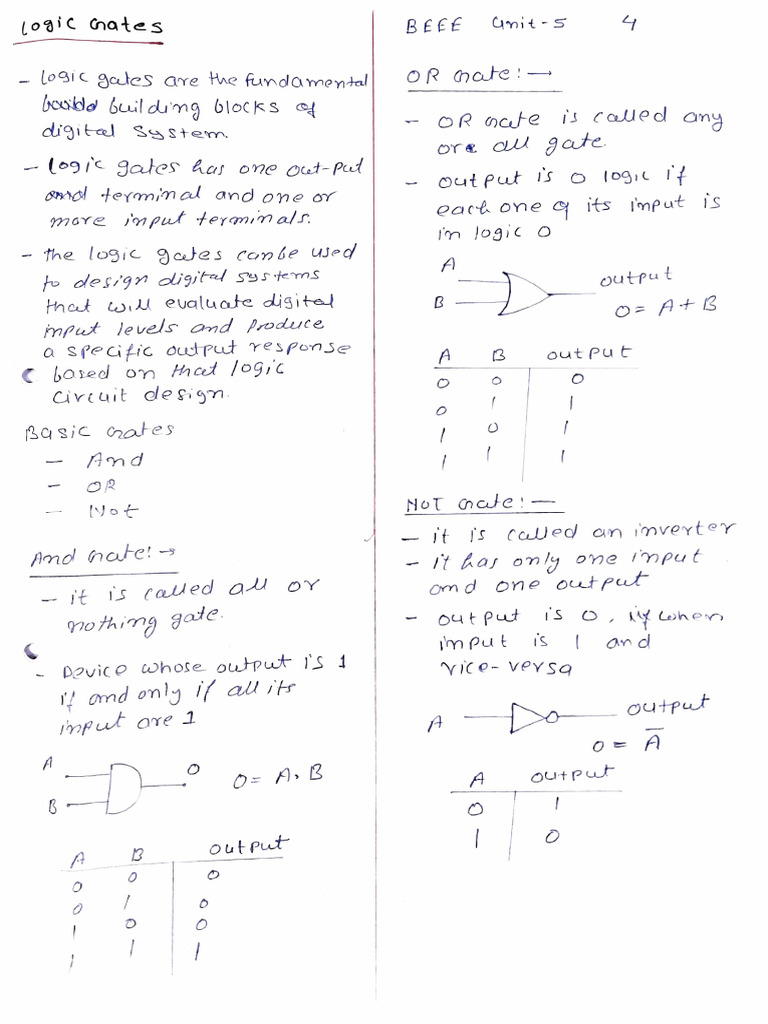 Logic Gates
- Logic gates are the fundamental
building blocks of
digital system.
- Logic gates has one out-put
terminal and one or
more input terminals.
- the logic gates canbe used
to design digital systems
that will evaluate digital
input levels and produce
a specific output response
based on that logic
circuit design.
Basic Gates
- And
- OR
- Not
And Gate:→
- it is called all or
nothing gate.
- Device whose output is 1
if and only if all its
input are 1
A
B
O
O = A.B
A B output
0 0 0
0 1 0
1 0 0
1 1 1
BEEE Unit-5 4
OR Gate:→
- OR Gate is called any
or all gate.
- output is 0 logic if
each one of its input is
in logic 0
A
B
output
O = A+B
A B output
0 0 0
0 1 1
1 0 1
1 1 1
NOT Gate:—
- it is called an inverter
- it has only one input
and one output
- output is 0, when
input is 1 and
vice-versa
A
output
O = A̅
A output
0 1
1 0